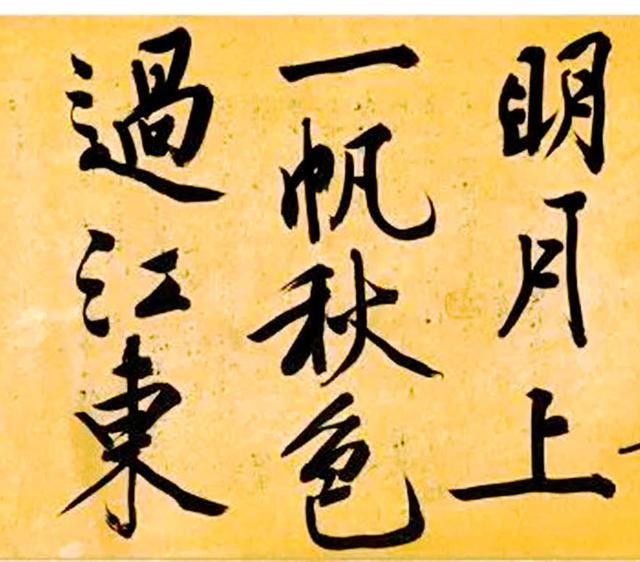 明月上
一帆秋色
過江東